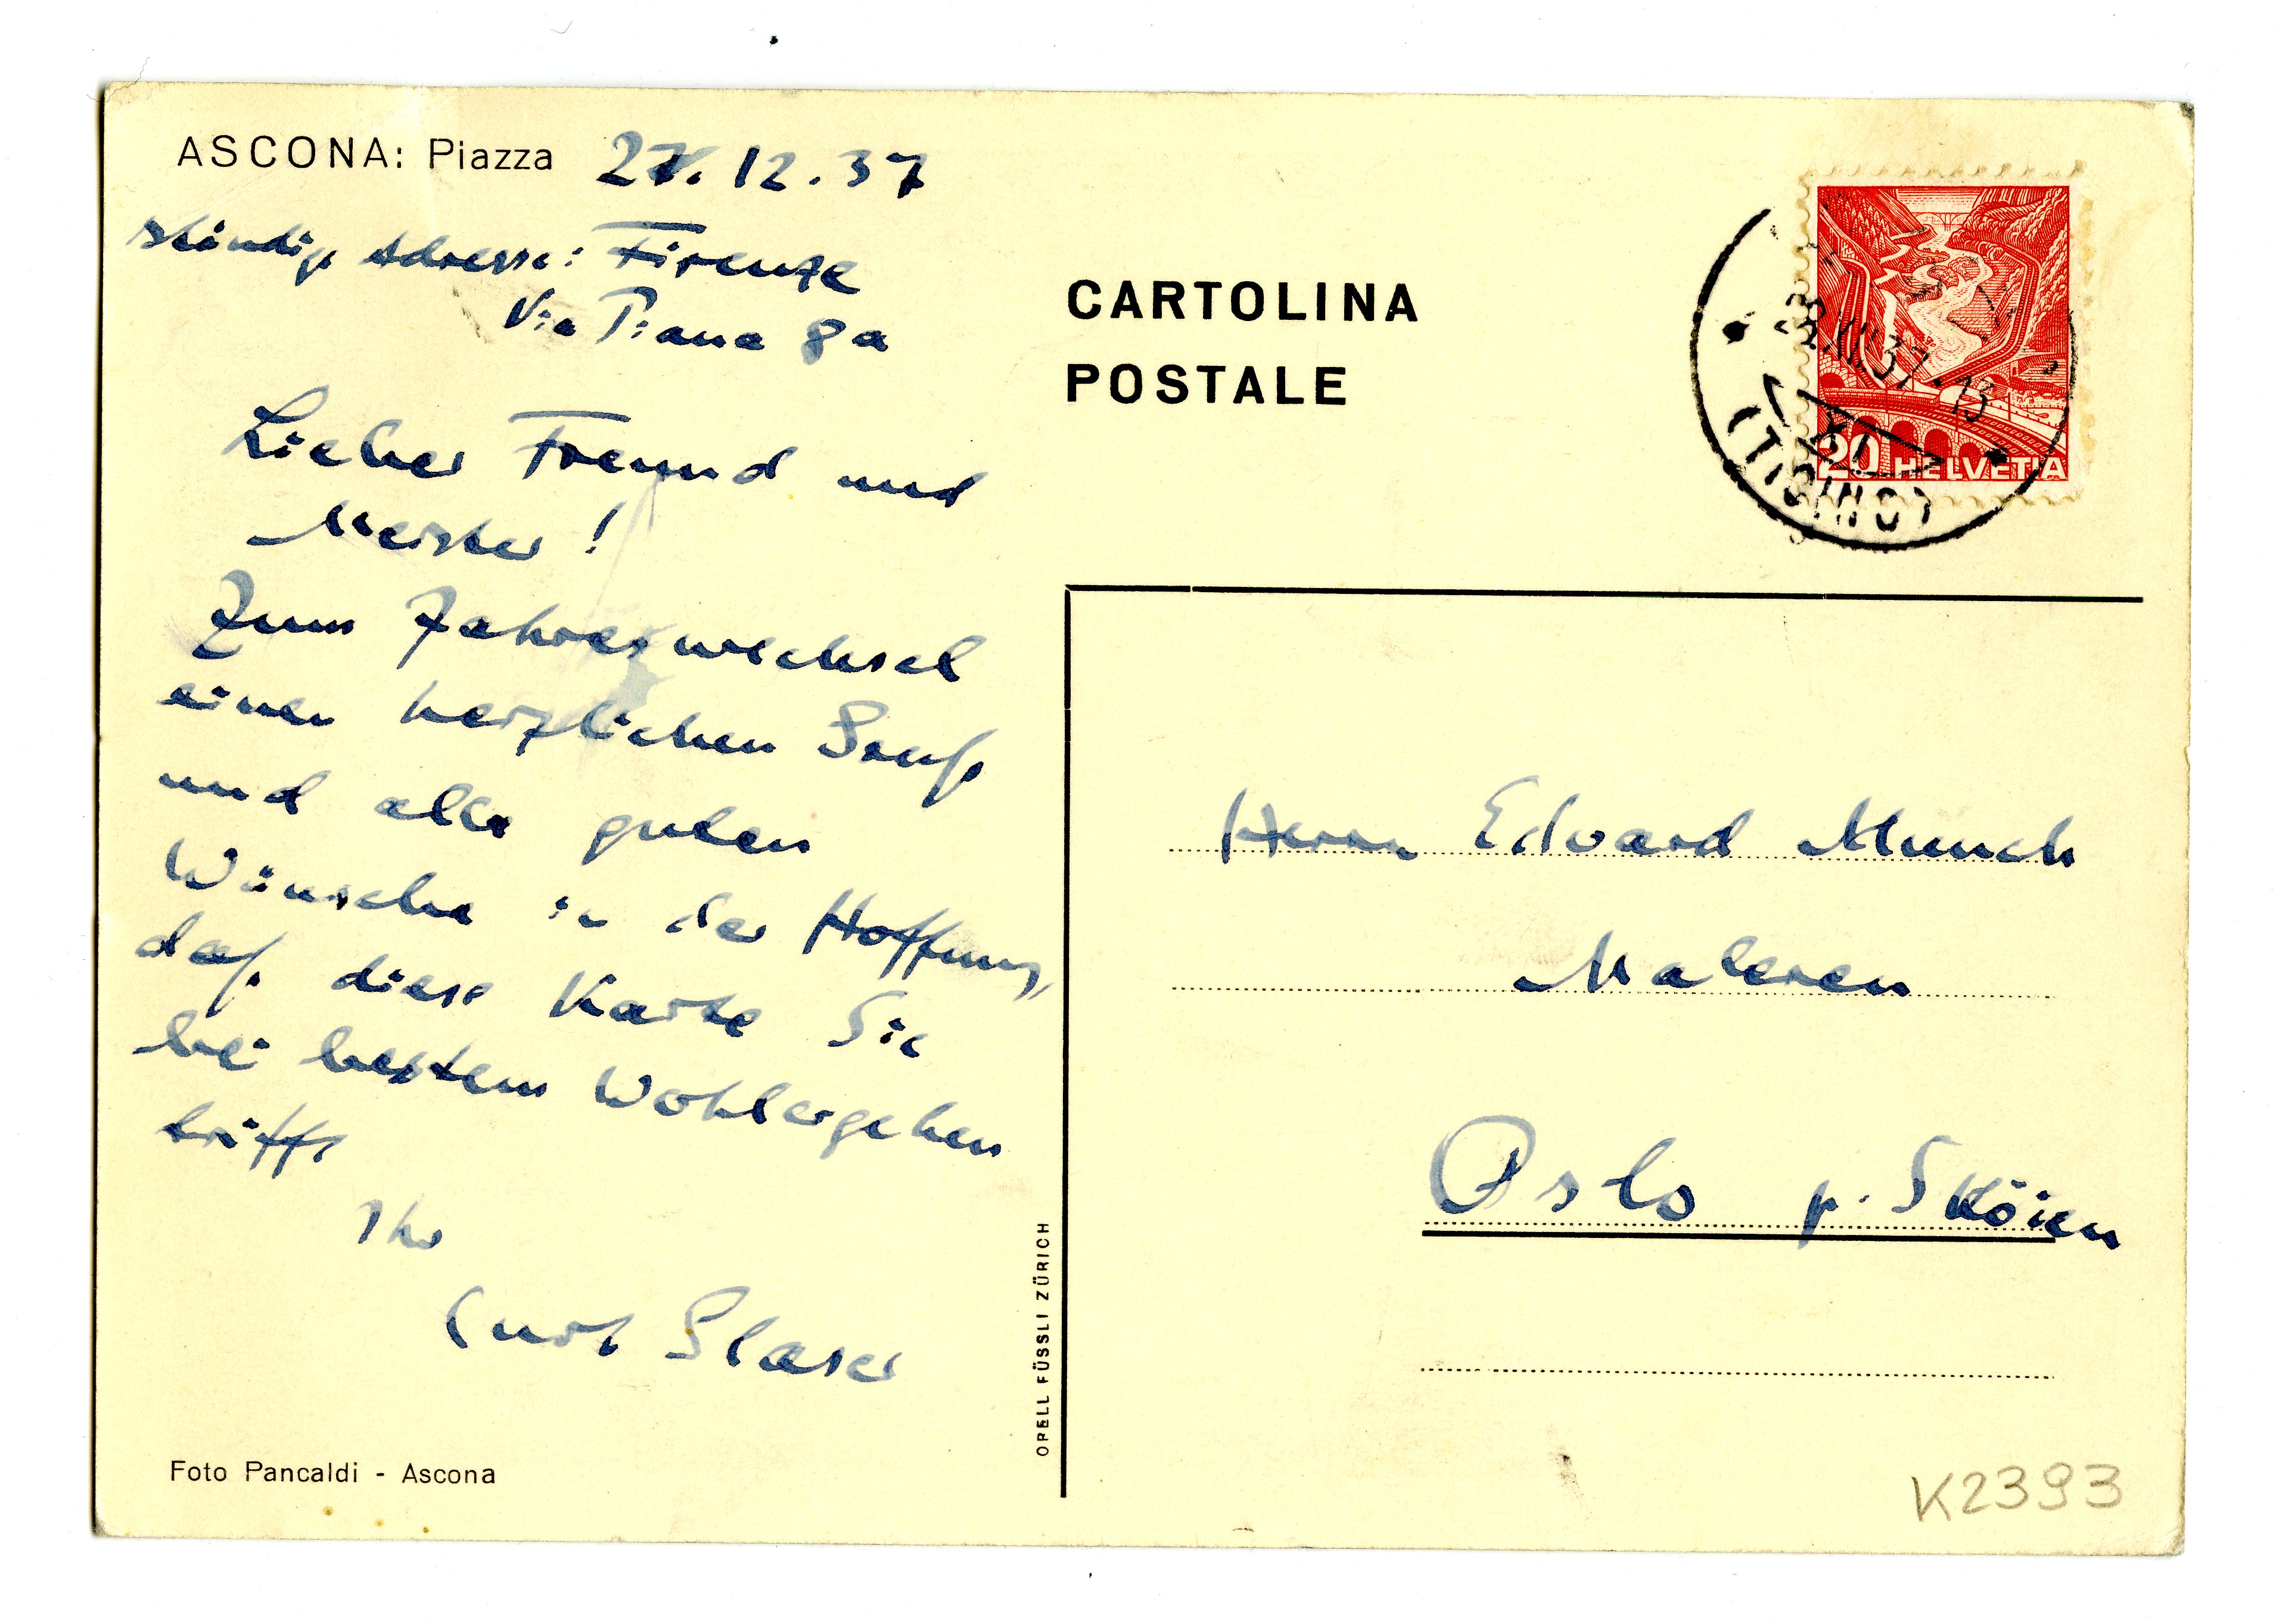 ASCONA: Piazza 27.12.37
ständige Adresse: Firenze
Via Piana 8a
Lieber Freund und
Meister!
Zum Jahreswechsel
einen herzlichen Gruß
und alle guten
Wünsche in der Hoffnung,
daß diese Karte Sie
bei bestem Wohlergehen
trifft
Ihr
Curt Glaser
Foto Pancaldi - Ascona
OPELL FÜSSLI ZÜRICH
CARTOLINA
POSTALE
28.XII.37.-13
XI
(TICINO)
20 HELVETIA
Herrn Edvard Munch
Maleren
Oslo p. Sköien
K2393